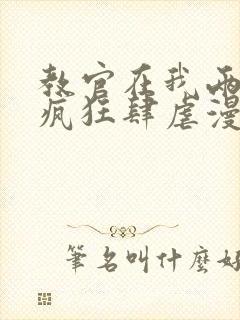 教官在我兩
瘋狂肆虐漫
筆名叫什麼好